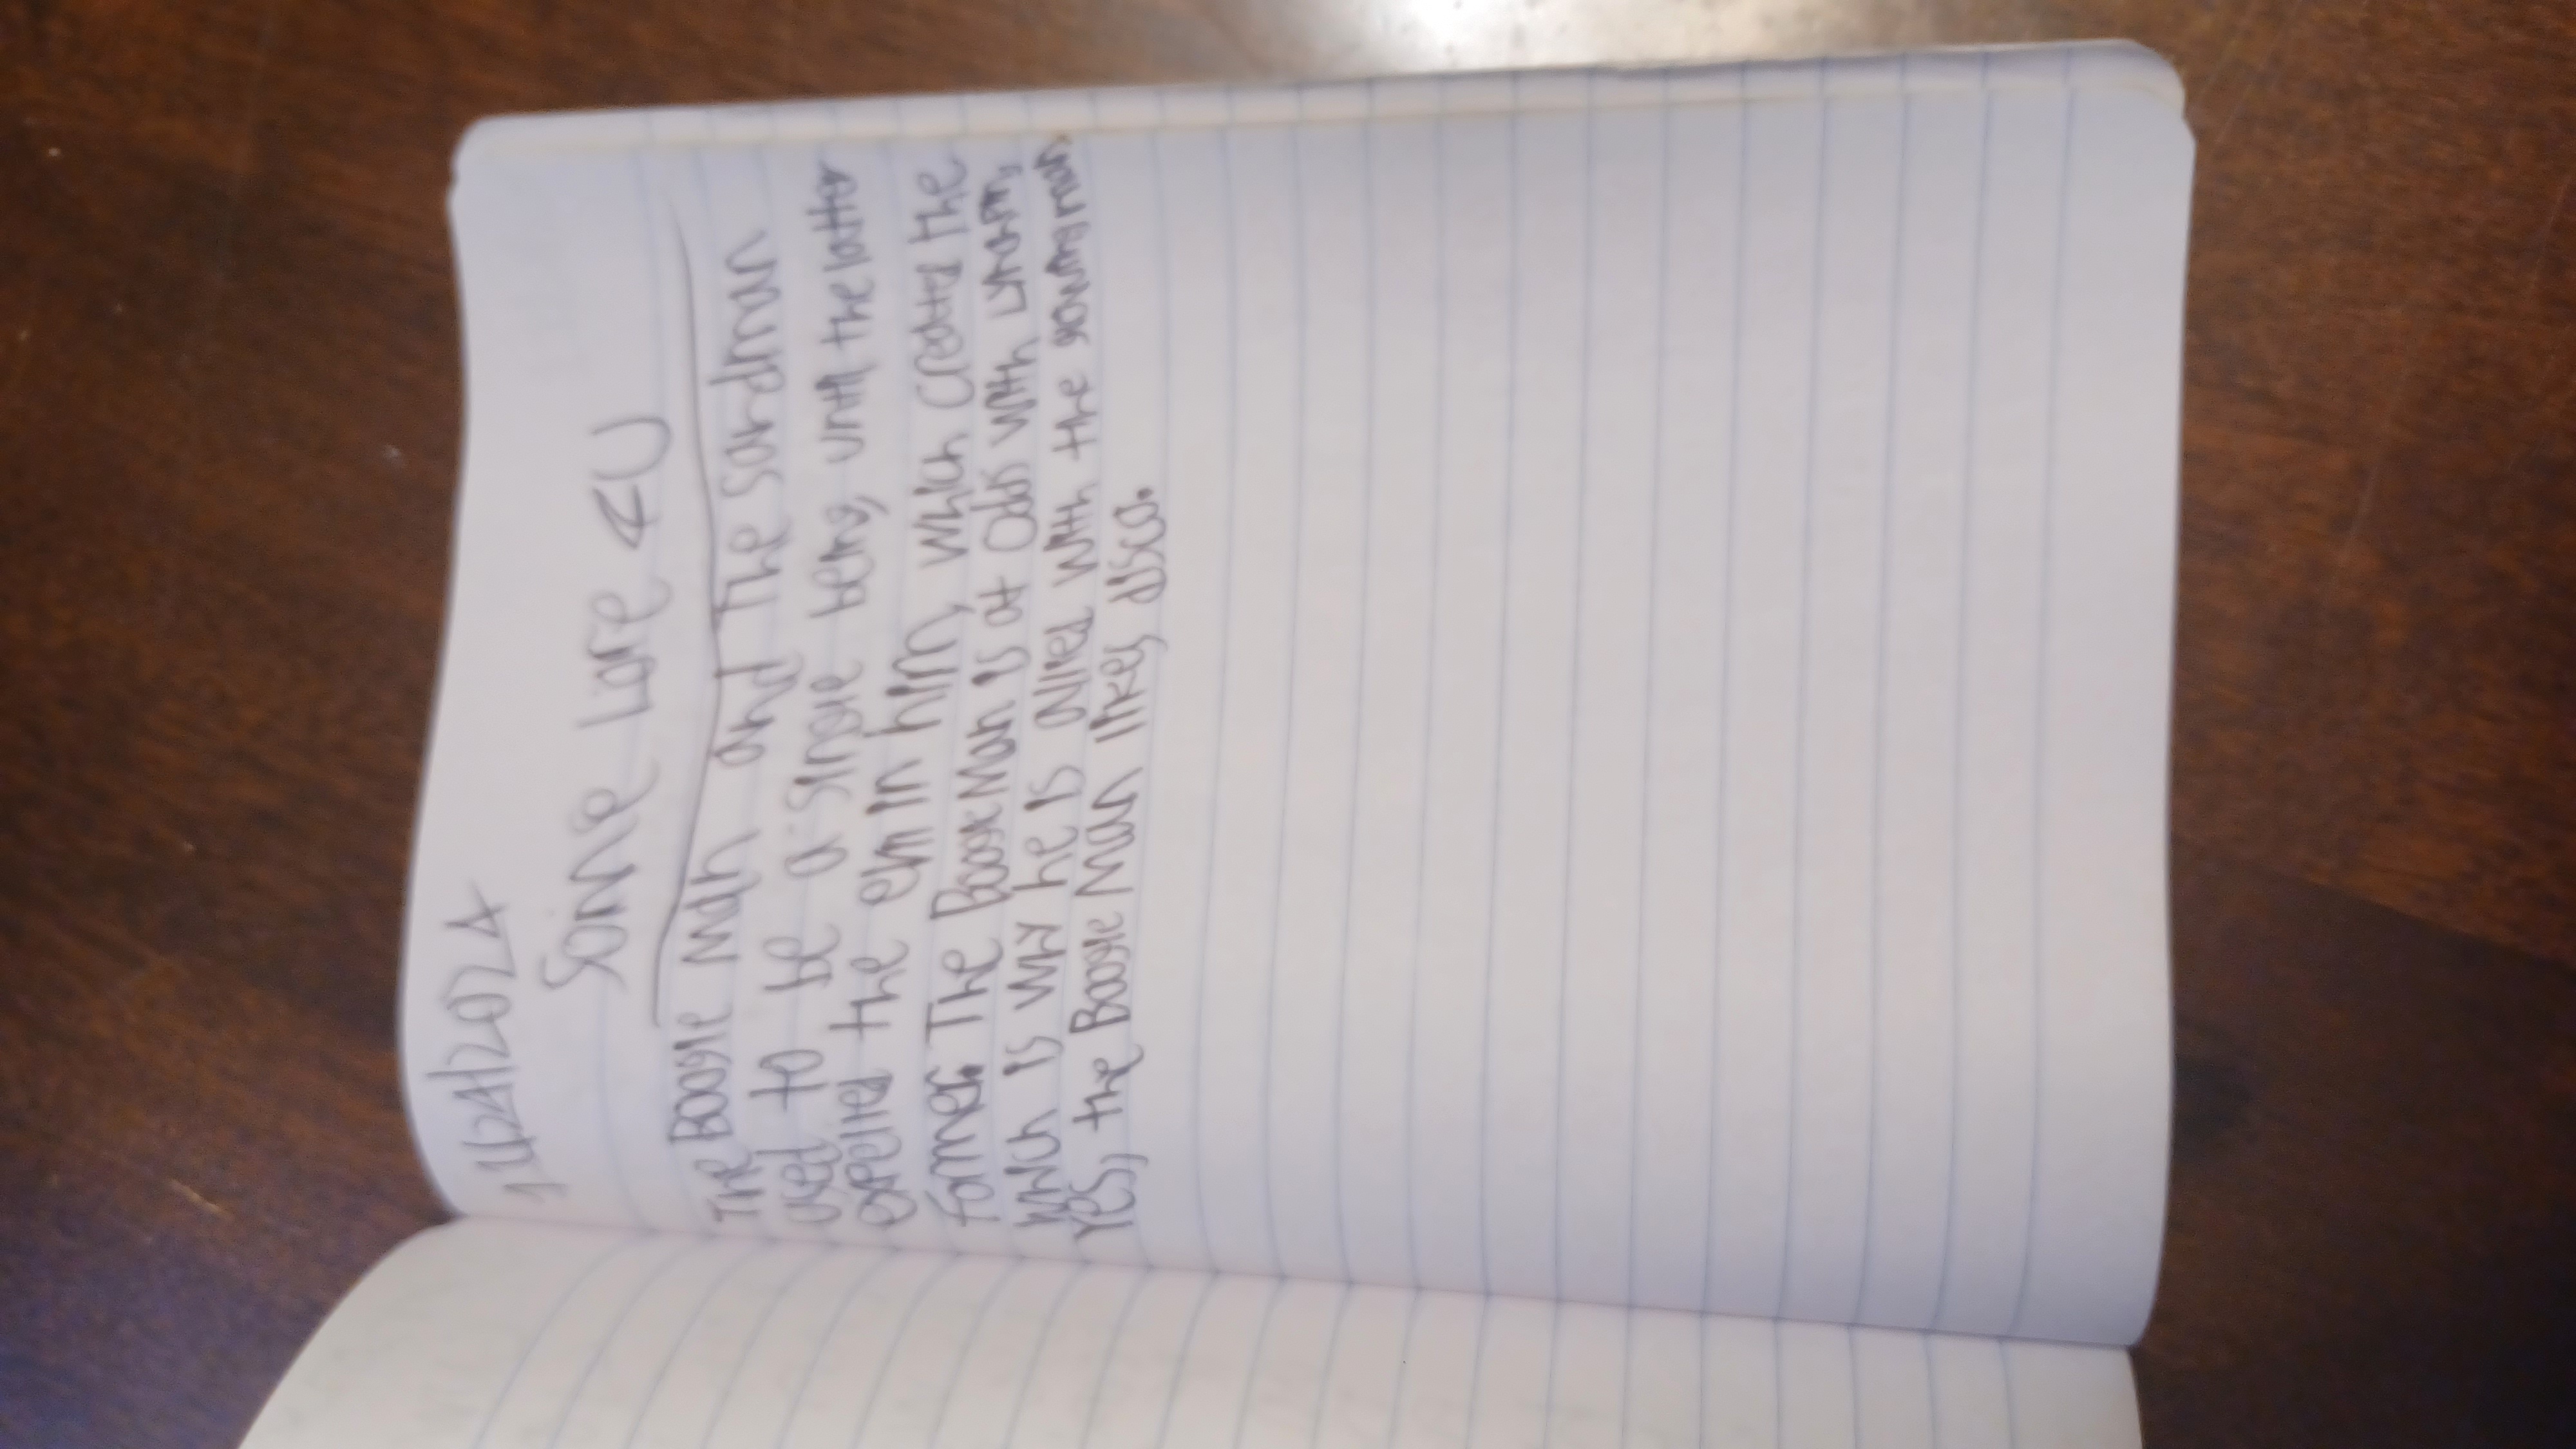 11/24/2024
Some Lore 4U
The Boogie Man and The Sandman
used to be a single being, until the latter
expelled the evil in him, which created the
former. The Boogie Man is at odds with
which is why he is allied with the man.
Yes, the Boogie Man likes disco.